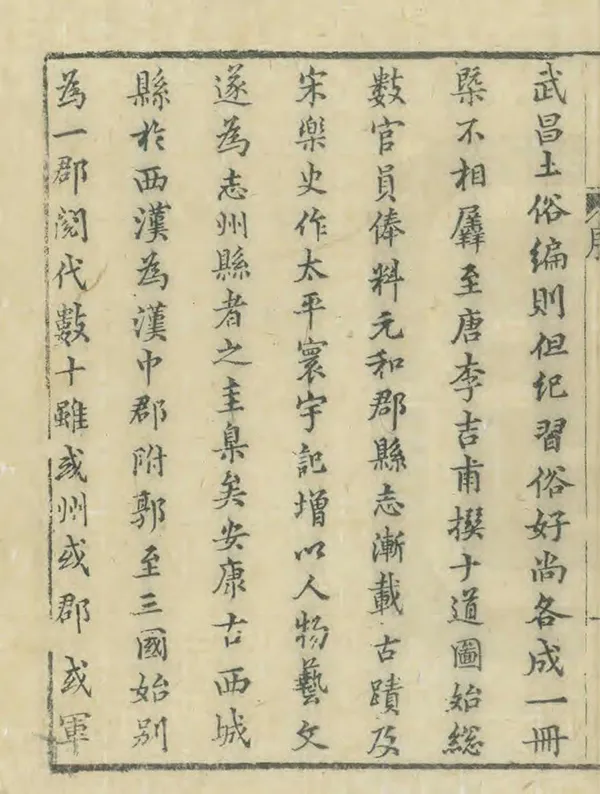 武昌土俗編則但紀習俗好尚各成一冊
槩不相羼至唐李吉甫撰十道圖始総
數官員俸料元和郡縣志漸載古蹟及
宋樂史作太平寰宇記增以人物藝文
遂為志州縣者之圭臬矣安康古西城
縣於西漢為漢中郡附郭至三國始別
為一郡閱代數十雖或州或郡或軍